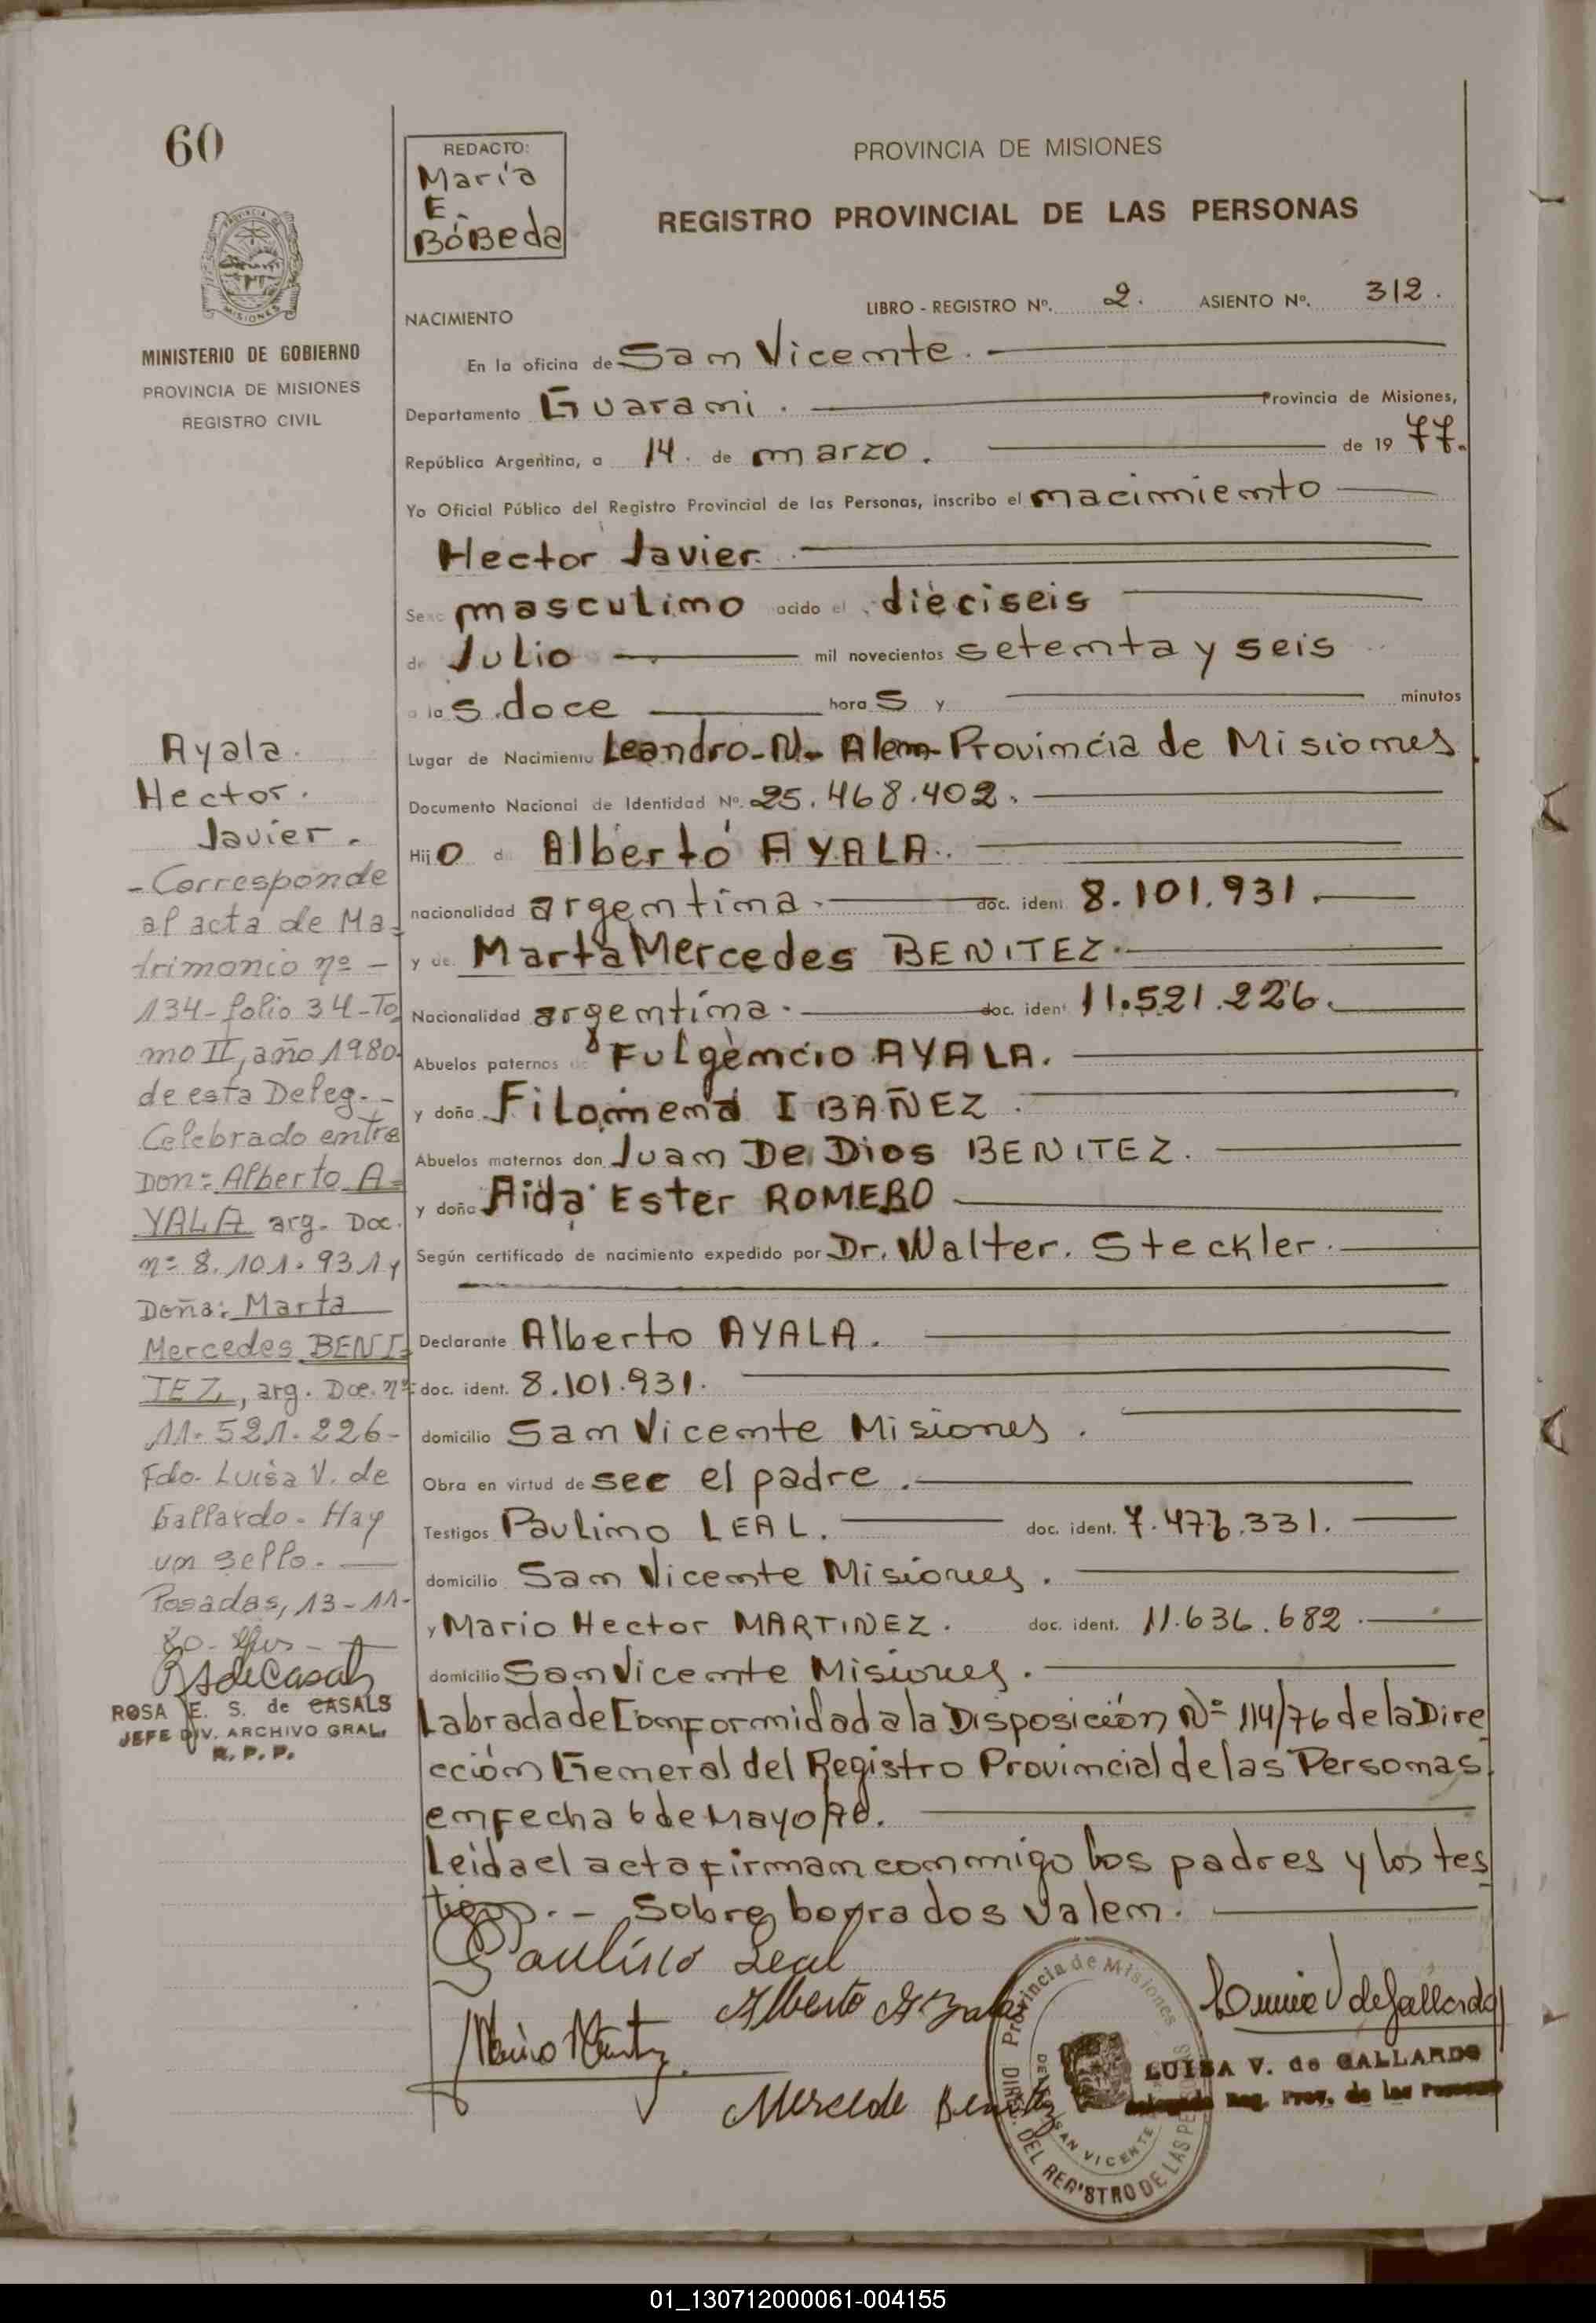 60
REDACTO:
Maria
E.
BóBeda
PROVINCIA DE MISIONES
REGISTRO PROVINCIAL DE LAS PERSONAS
MINISTERIO DE GOBIERNO
PROVINCIA DE MISIONES
REGISTRO CIVIL
LIBRO - REGISTRO Nº. 2. ASIENTO Nº. 312.
NACIMIENTO
En la oficina de San Vicente.
Departamento Guarani. Provincia de Misiones,
República Argentina, a 14. de marzo. de 1977.
Yo Oficial Público del Registro Provincial de las Personas, inscribo el nacimiento
Hector Javier.
Sexo masculino nacido el dieciseis
de Julio mil novecientos setenta y seis
a las doce horas y minutos
Lugar de Nacimiento Leandro-N. Alem-Provincia de Misiones
Documento Nacional de Identidad Nº. 25.468.402.
Hijo de Alberto AYALA.
nacionalidad argentina. doc. ident 8.101.931.
y de Marta Mercedes BENITEZ.
Nacionalidad argentina. doc. ident 11.521.226.
Abuelos paternos de Fulgencio AYALA.
y doña Filomena IBAÑEZ.
Abuelos maternos don Juan De Dios BENITEZ.
y doña Aida Ester ROMERO
Según certificado de nacimiento expedido por Dr. Walter. Steckler.
Declarante Alberto AYALA.
doc. ident. 8.101.931.
domicilio San Vicente Misiones.
Obra en virtud de ser el padre.
Testigos Paulino LEAL. doc. ident.
domicilio San Vicente Misiones.
y Mario Hector MARTINEZ. doc. ident. 11.636.682.
domicilio San Vicente Misiones.
Labrada de Conformidad a la Disposición Nº 114/76 de la Dire
cción General del Registro Provincial de las Personas
en fecha 6 de Mayo/76.
Leida el acta firman conmigo los padres y los tes
tigos.- Sobre borrados valen.
Ayala.
Hector.
Javier.
-Corresponde
al acta de Ma-
trimonio nº -
134-folio 34-To
mo II, año 1980.
de esta Deleg.-
Celebrado entre
Don: Alberto A=
YALA arg. Doc.
nº 8.101.931 y
Doña: Marta
Mercedes BENI=
TEZ, arg. Doc. nº
11.521.226-
Fdo. Luisa V. de
Gallardo. Hay
un sello.-
Posadas, 13-11-
80.
ROSA E. S. de CASALS
JEFE DIV. ARCHIVO GRAL.
R. P. P.
Paulino Leal
Alberto Ayala
Mario Martinez
Mercede Benitez
LUISA V. de GALLARDO
Delegada Reg. Prov. de las Personas
Provincia de Misiones
DEL REGISTRO DE LAS PE
SAN VICENTE
01_130712000061-004155